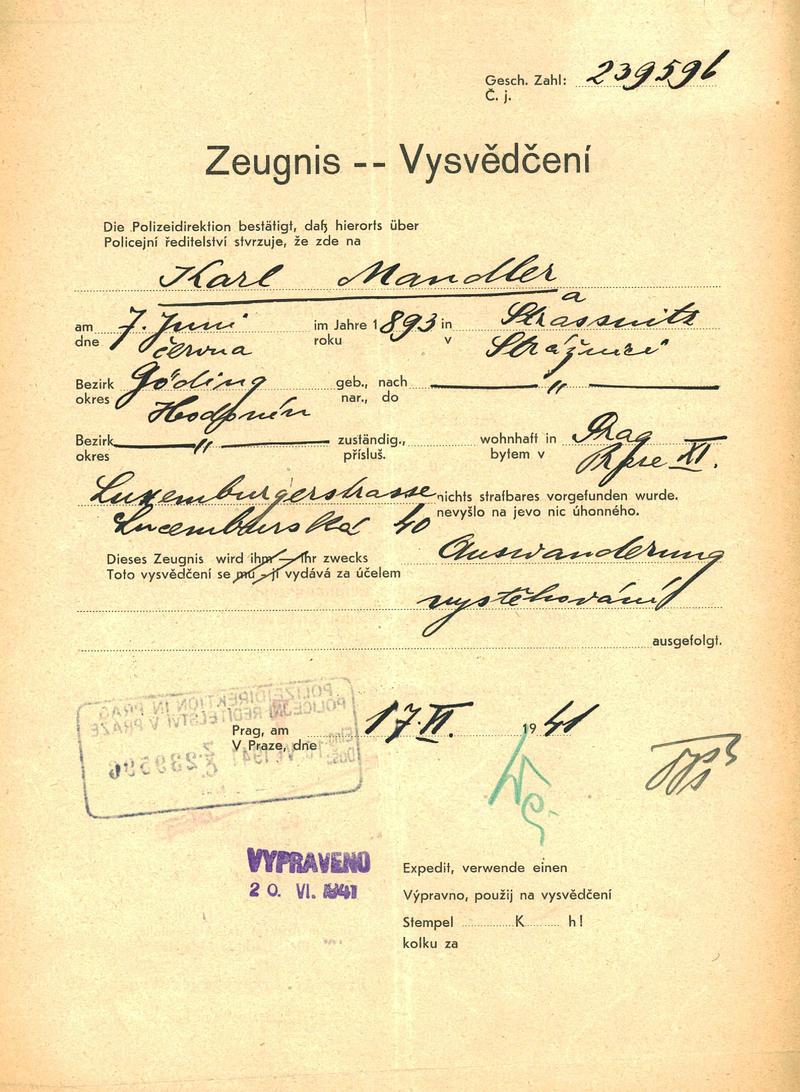 Gesch. Zahl: 239596
Č. j.
Zeugnis -- Vysvědčení
Die Polizeidirektion bestätigt, daß hierorts über
Policejní ředitelství stvrzuje, že zde na
Karl Mandler
a
am 7. Juni im Jahre 1893 in Strassnitz
dne června roku v Strážnici
Bezirk Göding geb., nach "
okres Hodonín nar., do
Bezirk " zuständig., wohnhaft in Prag
okres přísluš. bytem v Praze XI.
Luxemburgerstrasse nichts strafbares vorgefunden wurde.
Lucemburská 40 nevyšlo na jevo nic úhonného.
Dieses Zeugnis wird ihm - ihr zwecks Auswanderung
Toto vysvědčení se mu - jí vydává za účelem
vystěhování
ausgefolgt.
POLIZEIDIREKTION IN PRAG
POLICEJNÍ ŘEDITELSTVÍ V PRAZE
Prag, am 17.VI. 1941
V Praze, dne
239596
VYPRAVENO
20. VI. 1941
Expedit, verwende einen
Výpravno, použij na vysvědčení
Stempel K h!
kolku za